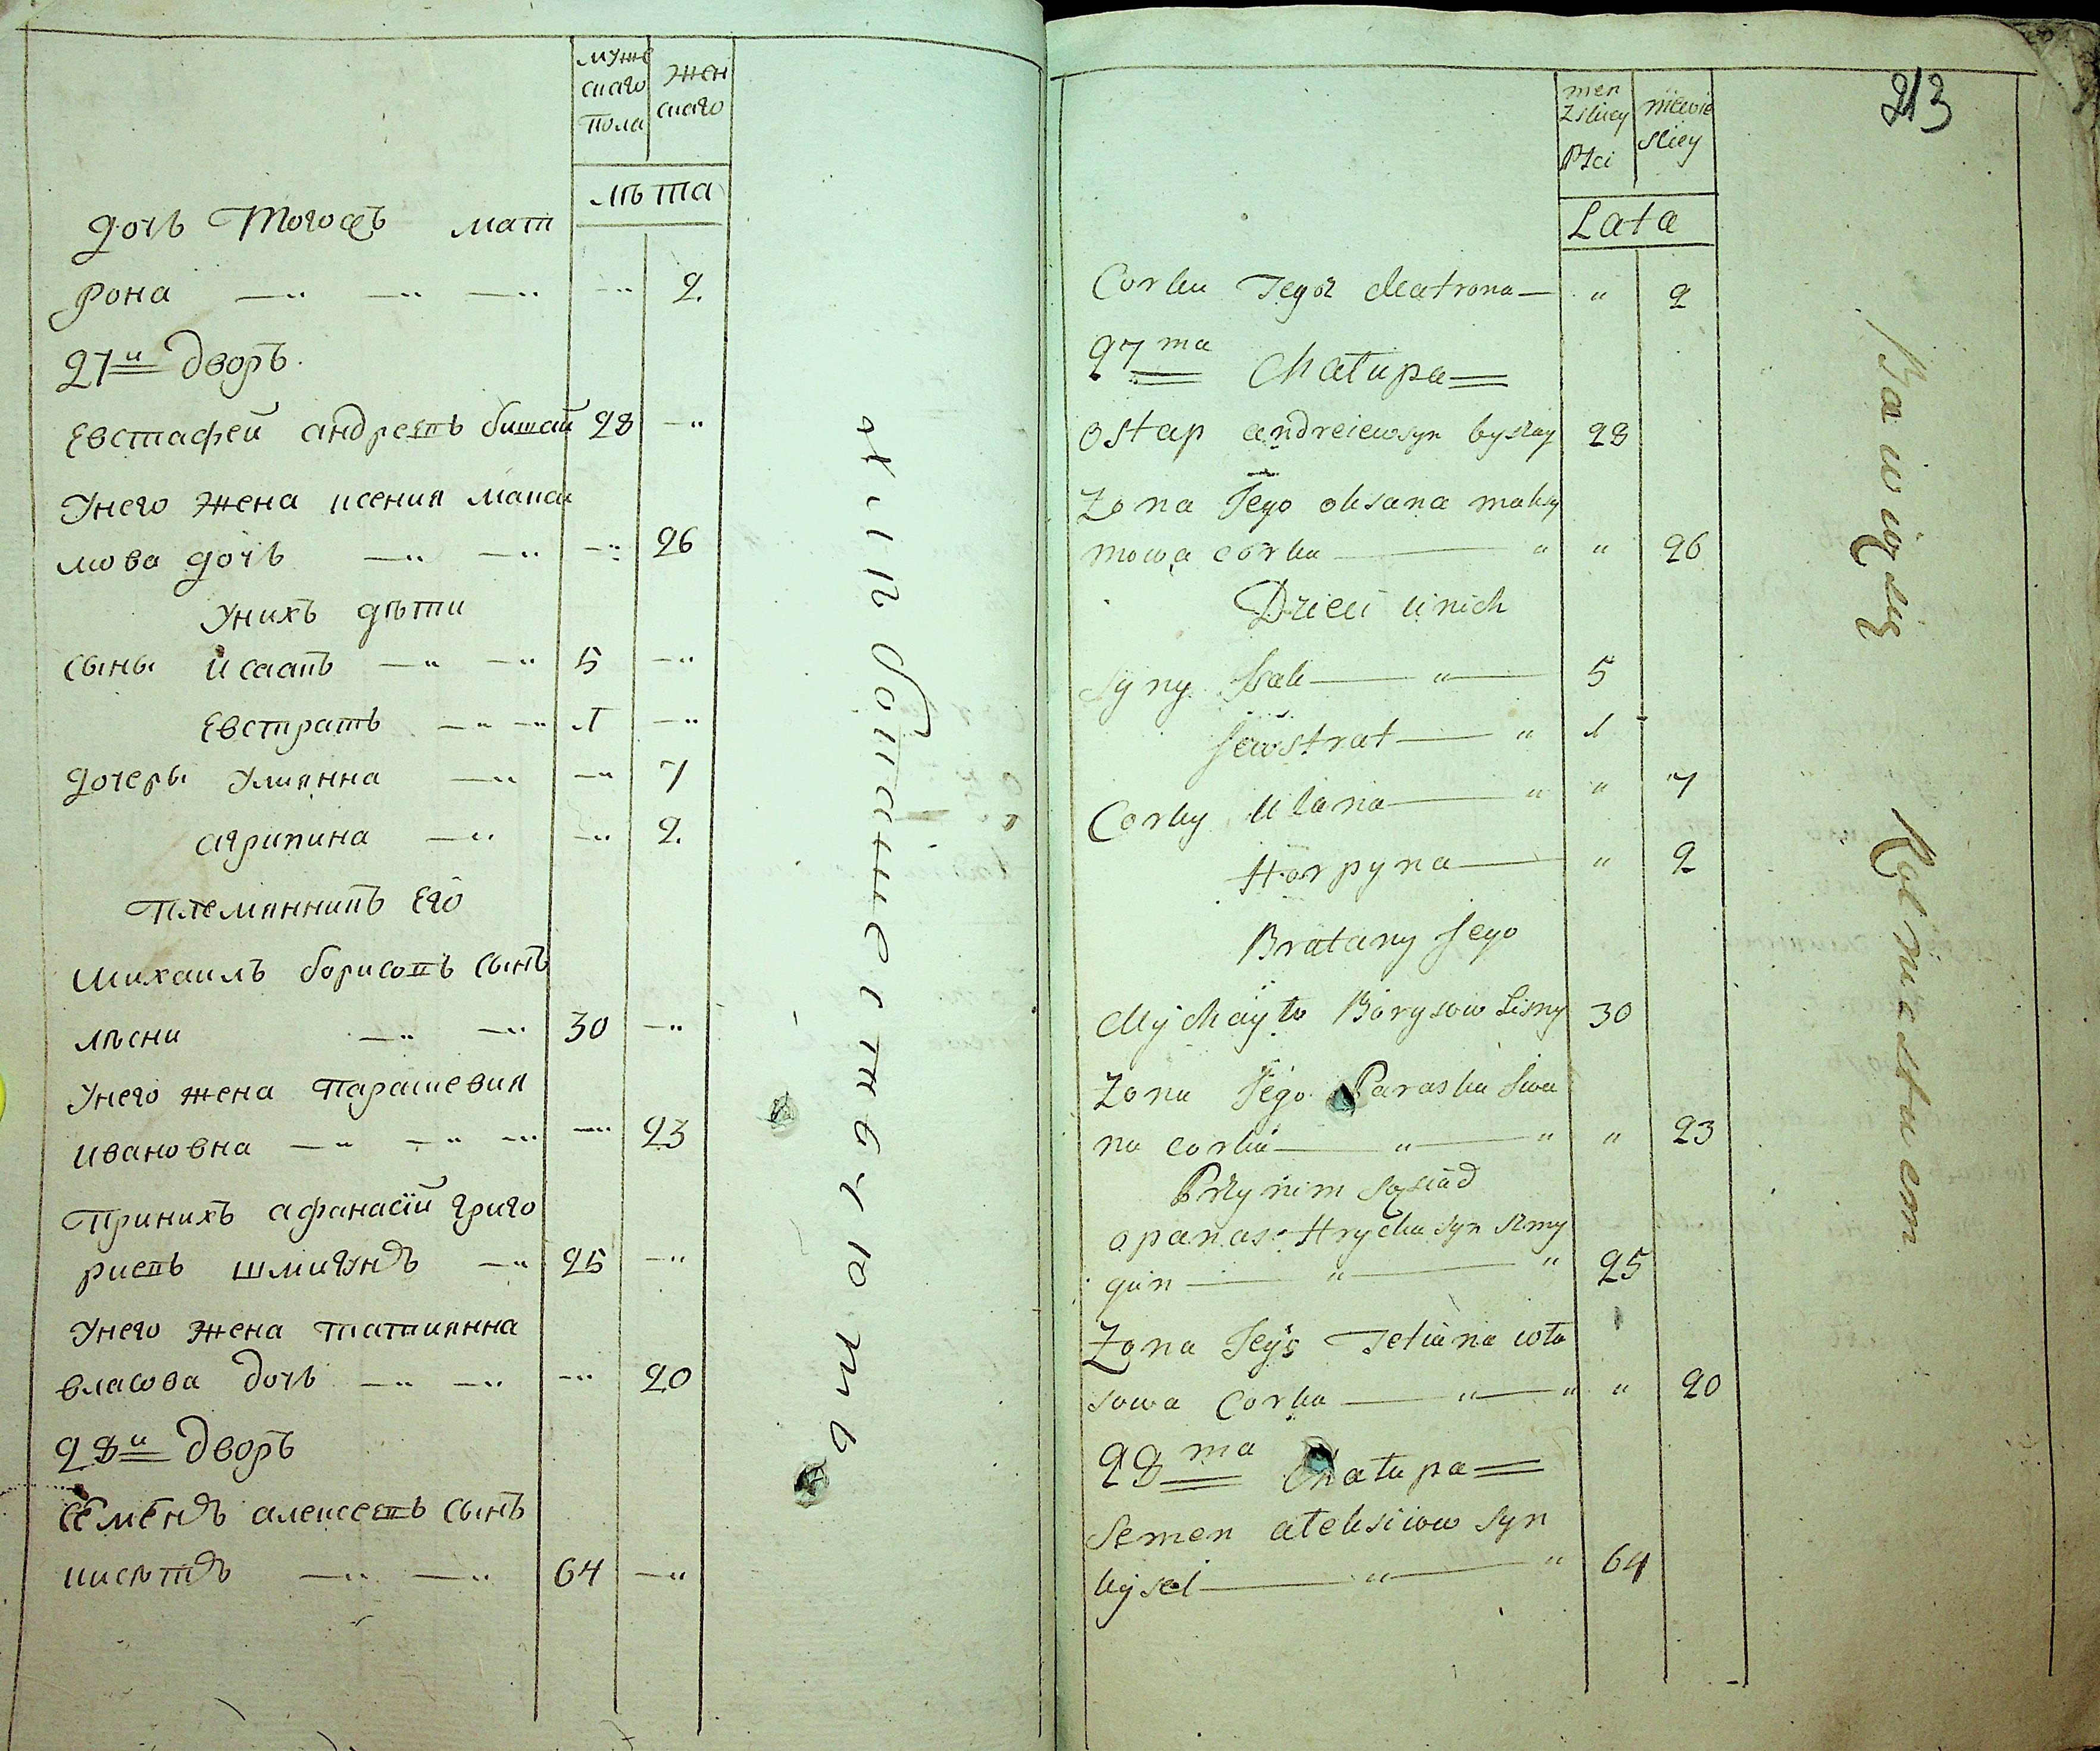 муже
скаго
пола
жен
скаго
лѣта
дочь Тогожъ мат
рона 2.
27й дворъ.
Евстафей андреевъ бишай 28
Унего жена ксения макси
мова дочь 26
Унихъ дѣти
сыны Исаакъ 5
Евстратъ 1
дочеры Улиянна 7
агрипина 2.
Племянникъ Его
Михаилъ борисовъ сынъ
лѣсни 30
Унего жена Парашевия
ивановна 23
Принихъ афанасій григо
риевъ шмигунъ 25
Унего жена татиянна
власова дочь 20
28й дворъ
семенъ алексеевъ сынъ
64
213
men
zskiey
Płci
niewie
skiey
Lata
Corka Tegoż Matrona " 2
27ma Chałupa
Ostap andreiew syn byszay 28
Żona Jego oksana maksy
mowa corka " " 26
Dzieci u nich
Syny Isak " 5
Jewstrat " 1
Corky Ulana " " 7
Horpyna " 2
Bratany Jego
Mychayło Borysow Lisny 30
Żona Jego Paraska Iwa
na corka " " " 23
Przy nim sąsiad
opanas Hryćka syn szmy
gun " " 25
Żona Jego Tetiana wła
sowa Corka " " " 20
28ma Chałupa
Semen ałeksiiow syn
kysel " " 64
Bawiąsię
Rolnictwem